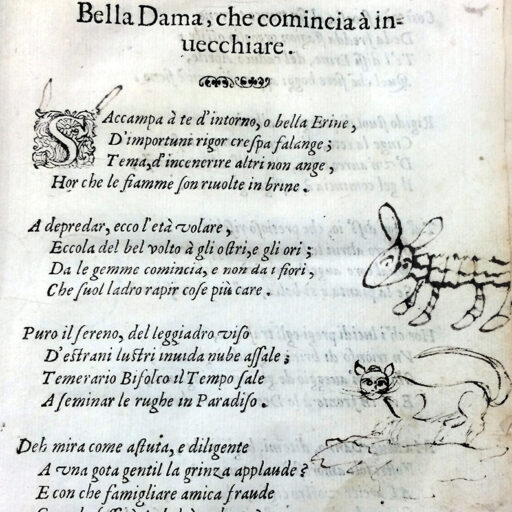 Bella Dama, che comincia à in-
uecchiare.
SAccampa à te d'intorno, o bella Erine,
D'importuni rigor crespa falange;
Tema, d'incenerire altri non ange,
Hor che le fiamme son riuolte in brine.
A depredar, ecco l'età volare,
Eccola del bel volto à gli ostri, e gli ori;
Da le gemme comincia, e non da i fiori,
Che suol ladro rapir cose più care.
Puro il sereno, del leggiadro viso
D'estrani lustri inuida nube assale;
Temerario Bifolco il Tempo sale
A seminar le rughe in Paradiso.
Deh mira come astuta, e diligente
A vna gota gentil la grinza applaude?
E con che famigliare amica fraude